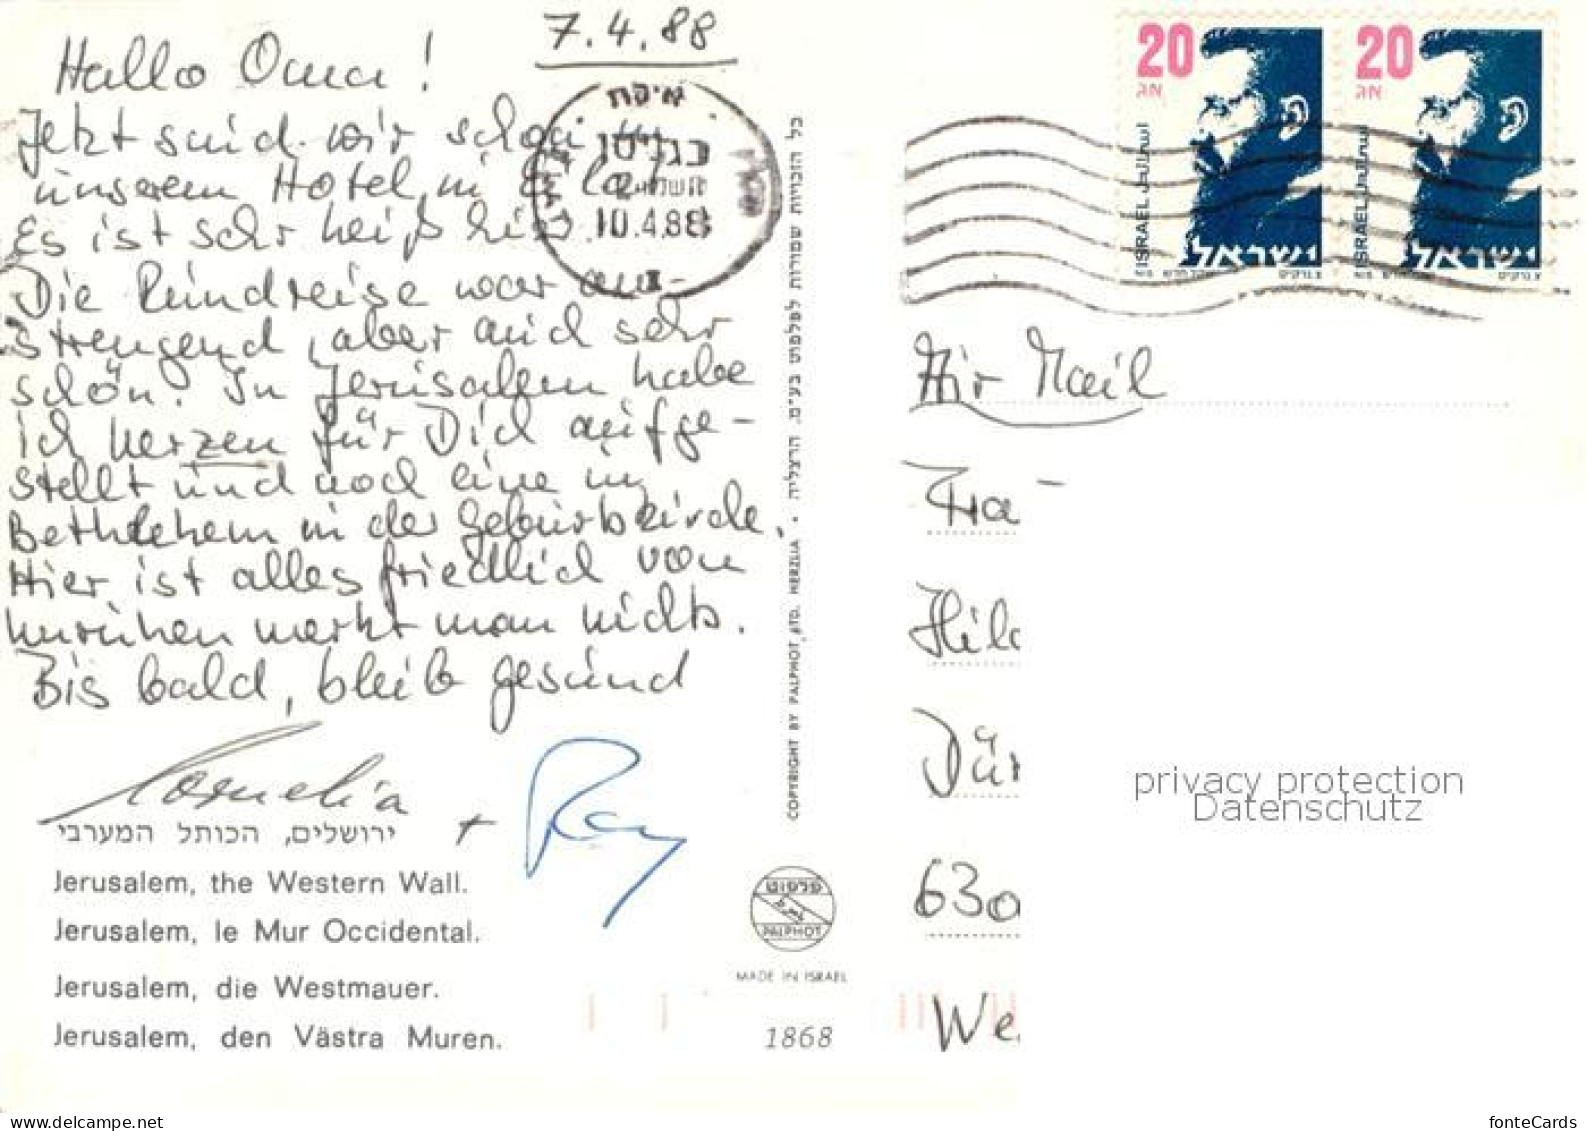 7.4.88
Hallo Oma!
Jetzt sind wir schon in
unserem Hotel in Eilat
Es ist sehr heiß hier.
Die Rundreise war an-
strengend, aber auch sehr
schön. In Jerusalem habe
ich Kerzen für Dich aufge-
stellt und noch eine in
Bethlehem in der Geburtskirche.
Hier ist alles friedlich von
Unruhen merkt man nichts.
Bis bald, bleib gesund
Cornelia + Ray
ירושלים, הכותל המערבי
Jerusalem, the Western Wall.
Jerusalem, le Mur Occidental.
Jerusalem, die Westmauer.
Jerusalem, den Västra Muren.
10.4.88
כל הזכויות שמורות לפלפוט בע"מ. הרצליה • COPYRIGHT BY PALPHOT LTD. HERZLIA
פלפוט
PALPHOT
MADE IN ISRAEL
1868
20 20
אג אג
ISRAEL اسرائيل ISRAEL اسرائيل
ישראל ישראל
Air Mail
Fra
Hild
Dür
630
We
privacy protection
Datenschutz
www.delcampe.net
fonteCards